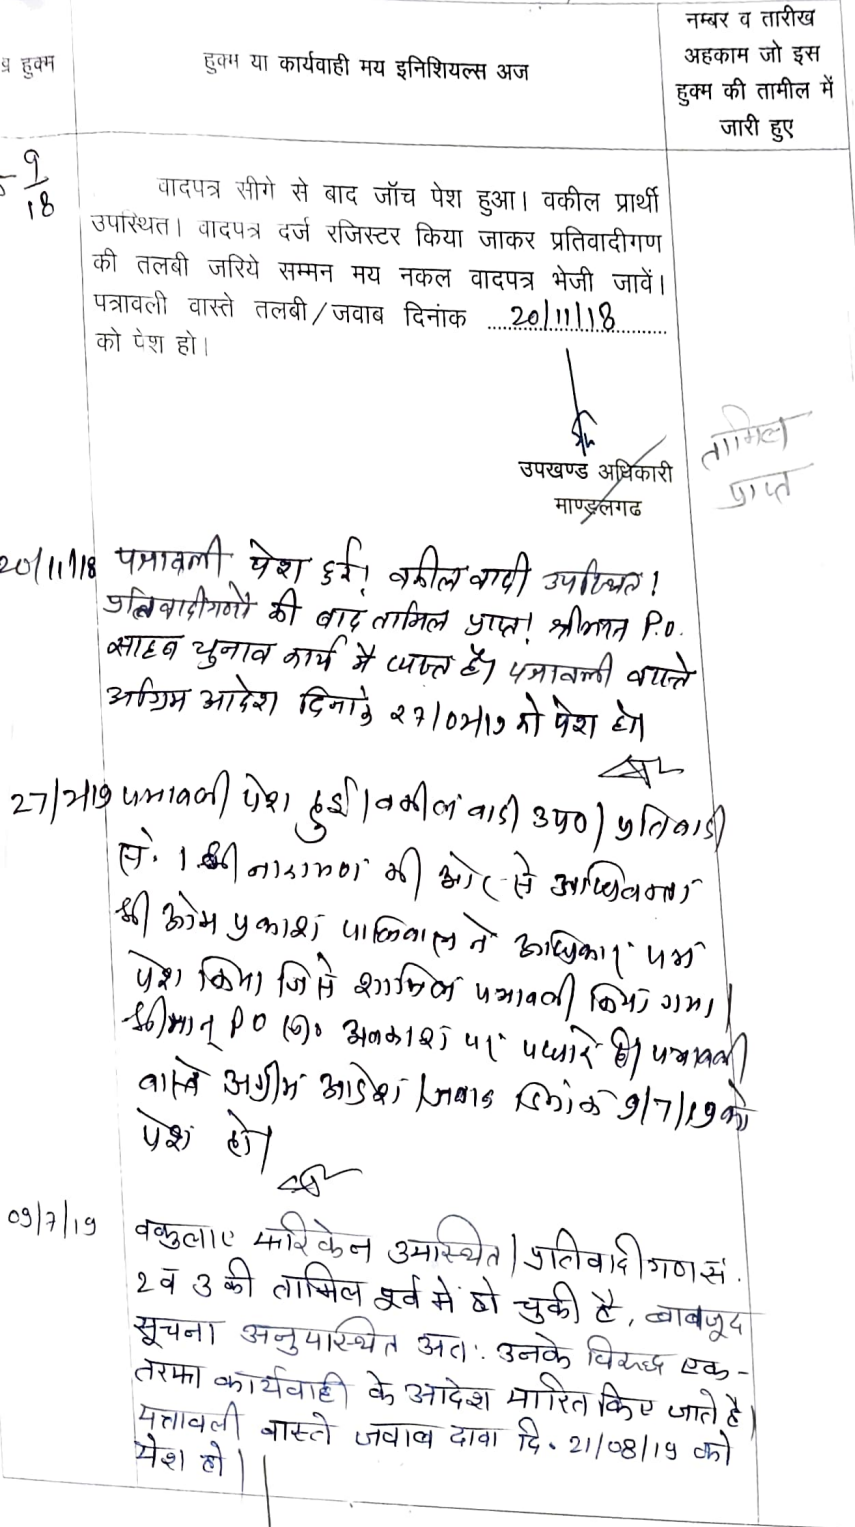 हुक्म
हुक्म या कार्यवाही मय इनिशियल्स अज
नम्बर व तारीख
अहकाम जो इस
हुक्म की तामील में
जारी हुए
9/18
वादपत्र सीगे से बाद जॉच पेश हुआ। वकील प्रार्थी
उपस्थित। वादपत्र दर्ज रजिस्टर किया जाकर प्रतिवादीगण
की तलबी जरिये सम्मन मय नकल वादपत्र भेजी जावें।
पत्रावली वास्ते तलबी/जवाब दिनांक 20/11/18
को पेश हो।
उपखण्ड अधिकारी
माण्डलगढ
तामिल
प्राप्त
20/11/18 पत्रावली पेश हुई! वकील वादी उपस्थित!
प्रतिवादीगणो की बाद तामिल प्राप्त! श्रीमान P.O.
साहब चुनाव कार्य मे व्यस्त है। पत्रावली वास्ते
अग्रिम आदेश दिनांक 27/02/19 को पेश हो।
27/2/19 पत्रावली पेश हुई। वकील वादी उप0। प्रतिवादी
सं. 1 श्री नारायण की ओर से अधिवक्ता
श्री ओम प्रकाश पालिवाल ने अधिकार पत्र
पेश किया जिसे शामिल पत्रावली किया गया।
श्रीमान् PO अवकाश पर पधारे है। पत्रावली
वास्ते अग्रीम आदेश/जवाब दिनांक 9/7/19 को
पेश हो।
09/7/19 वकुलाए फरिकेन उपस्थित। प्रतिवादीगण सं.
2 व 3 की तामिल पूर्व में हो चुकी है, बावजूद
सूचना अनुपस्थित अतः उनके विरुद्ध एक-
तरफा कार्यवाही के आदेश पारित किए जाते है।
पत्रावली वास्ते जवाब दावा दि. 21/08/19 को
पेश हो।